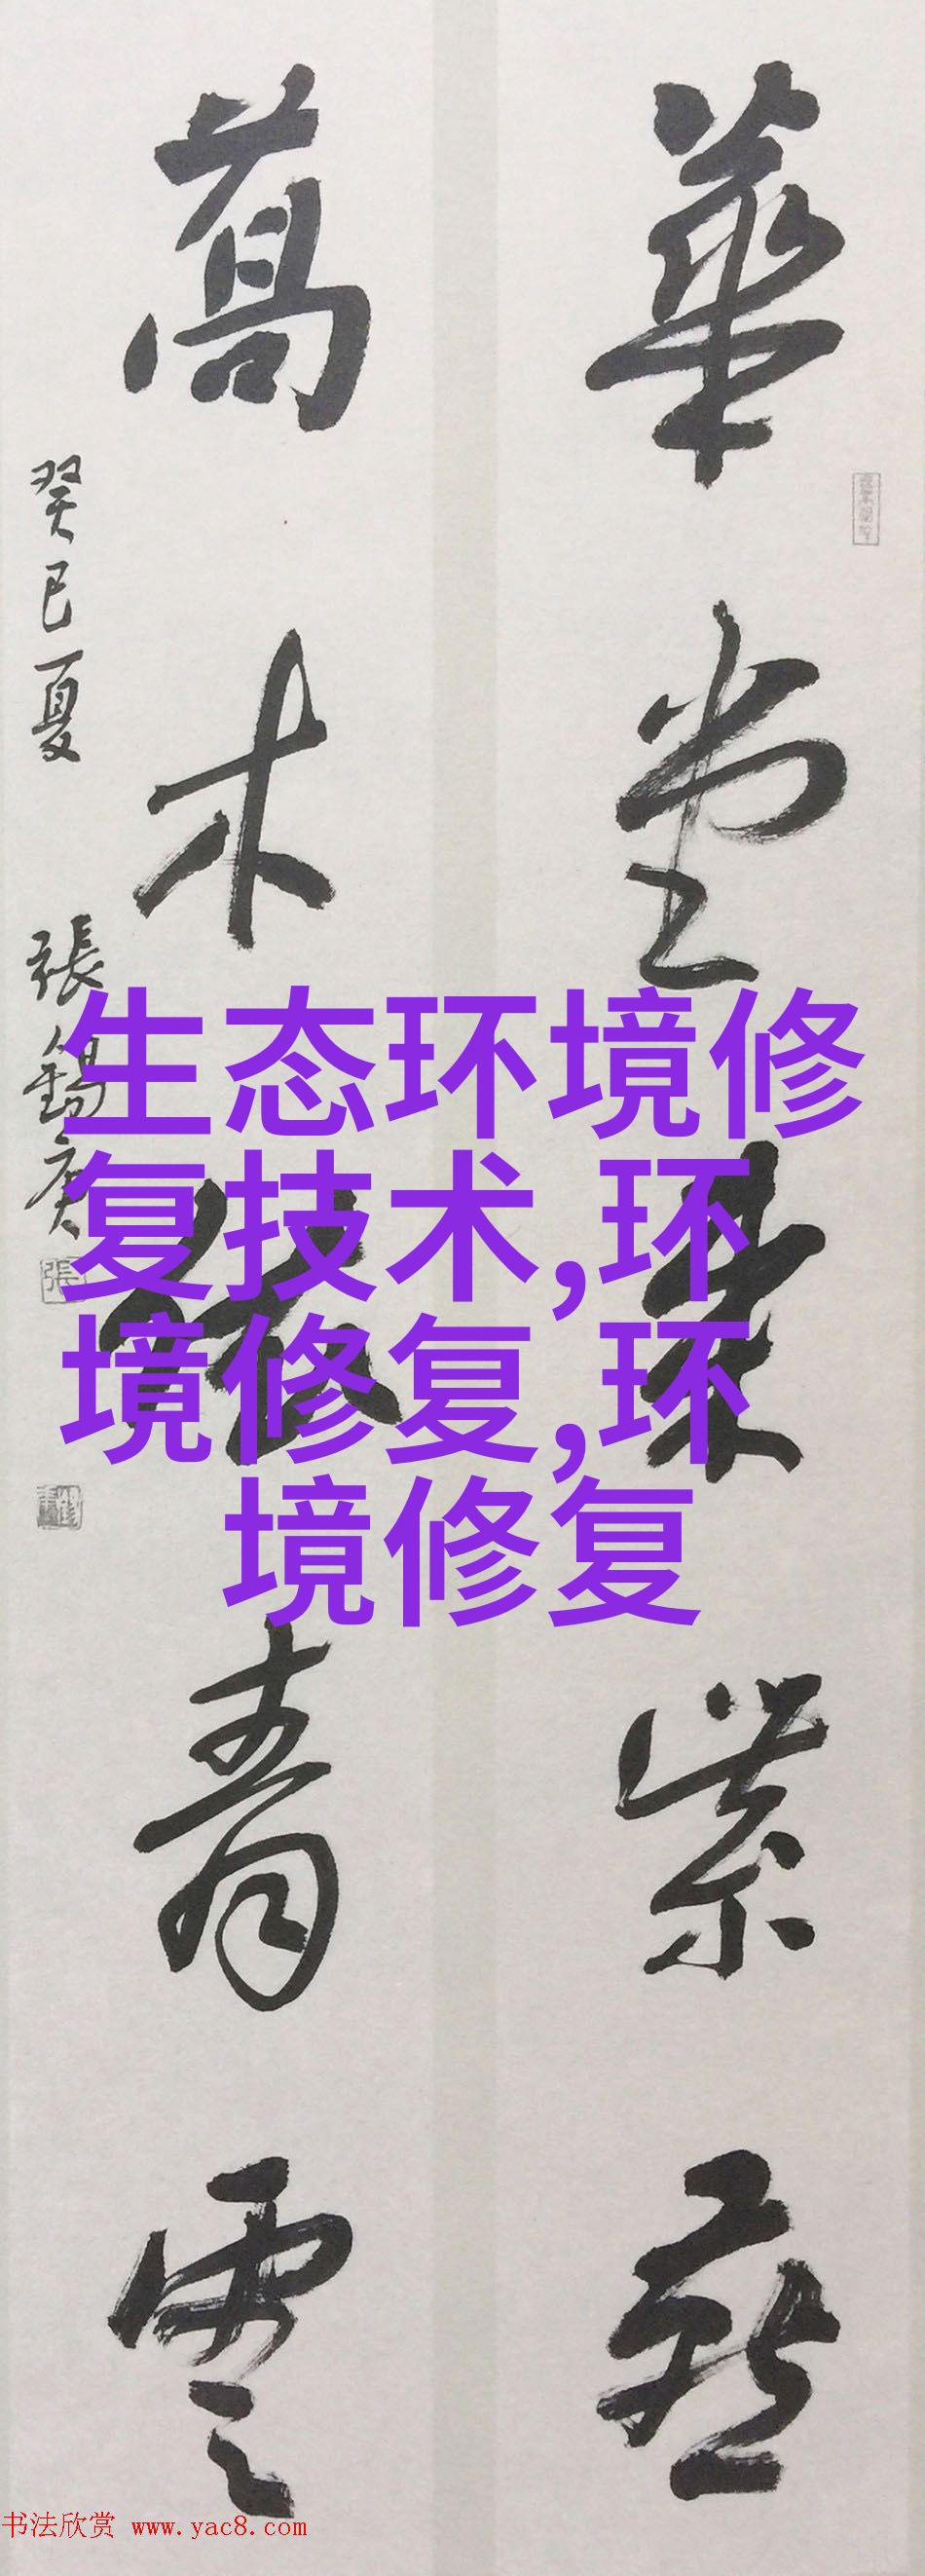 華堂紫
萬木青雲
癸巳夏 張錫庚
張
生态环境修
复技术,环
境修复,环
境修复
书法欣赏 www.yac8.com